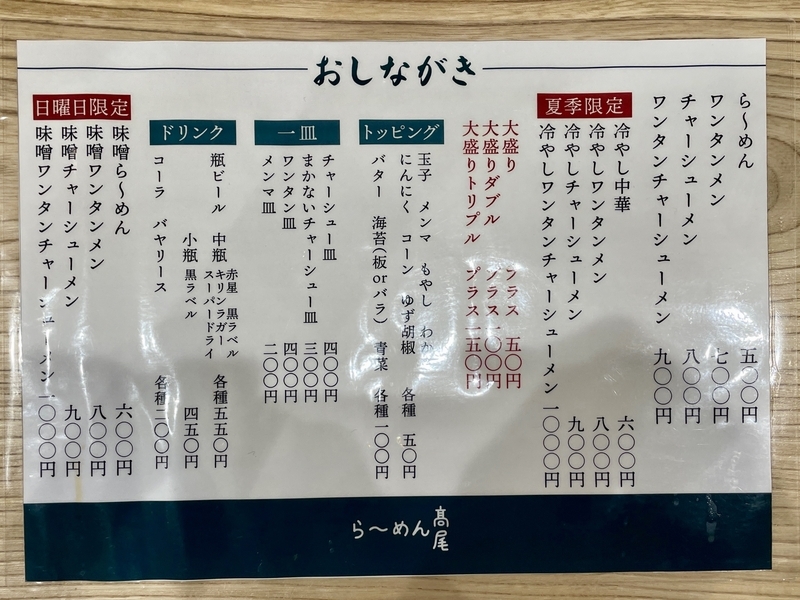 おしながき
ら〜めん 五〇〇円
ワンタンメン 七〇〇円
チャーシューメン 八〇〇円
ワンタンチャーシューメン 九〇〇円
夏季限定
冷やし中華 六〇〇円
冷やしワンタンメン 八〇〇円
冷やしチャーシューメン 九〇〇円
冷やしワンタンチャーシューメン 一〇〇〇円
大盛り プラス 五〇円
大盛りダブル プラス一〇〇円
大盛りトリプル プラス一五〇円
トッピング
玉子 メンマ もやし わか
にんにく コーン ゆず胡椒 各種 五〇円
バター 海苔(板orバラ) 青菜 各種一〇〇円
一皿
チャーシュー皿 四〇〇円
まかないチャーシュー皿 三〇〇円
ワンタン皿 四〇〇円
メンマ皿 二〇〇円
ドリンク
瓶ビール 中瓶 赤星 黒ラベル
キリンラガー
スーパードライ 各種五五〇円
小瓶 黒ラベル 四五〇円
コーラ バヤリース 各種二〇〇円
日曜日限定
味噌ら〜めん 六〇〇円
味噌ワンタンメン 八〇〇円
味噌チャーシューメン 九〇〇円
味噌ワンタンチャーシューメン一〇〇〇円
ら〜めん髙尾